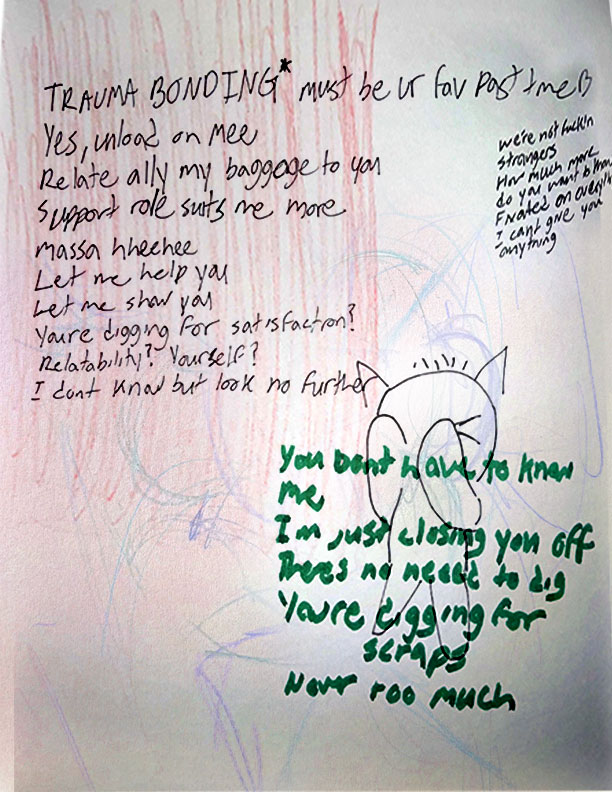 TRAUMA BONDING* must be ur fav past time
Yes, unload on mee
Relate ally my baggage to you
Support role suits me more
massa hheehee
Let me help you
Let me show you
Youre digging for satisfaction?
Relatability? Yourself?
I dont know but look no further
we're not fuckin
strangers
How much more
do you want to know
Fixated on everyth
I cant give you
anything
You dont have to know
me
I'm just closing you off
Theres no need to dig
You're digging for
scraps
Never too much